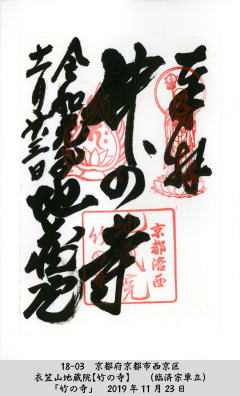 奉拝
京都洛西
竹の寺
地蔵院
令和元年
十一月廿三日
18-03　京都府京都市西京区
衣笠山地蔵院【竹の寺】　（臨済宗単立）
「竹の寺」　2019年11月23日